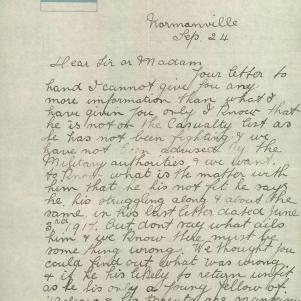 Normanville
Sep. 24
Dear Sir or Madam
Your letter to
hand I cannot give you any
more information than what I
have given you, only I know that
he is not on the Casualty list as
he has not been fighting & we
have not been advised by the
Military authorities, & we want
to know what is the matter with
him that he his not fit he says
he his struggling along & about the
same, in his last letter dated June
3rd 1917. But dont say what ails
him & we know there must be
some thing wrong. We thought you
could find out what was wrong
& if he his likely to return unfit
as he his only a young fellow of